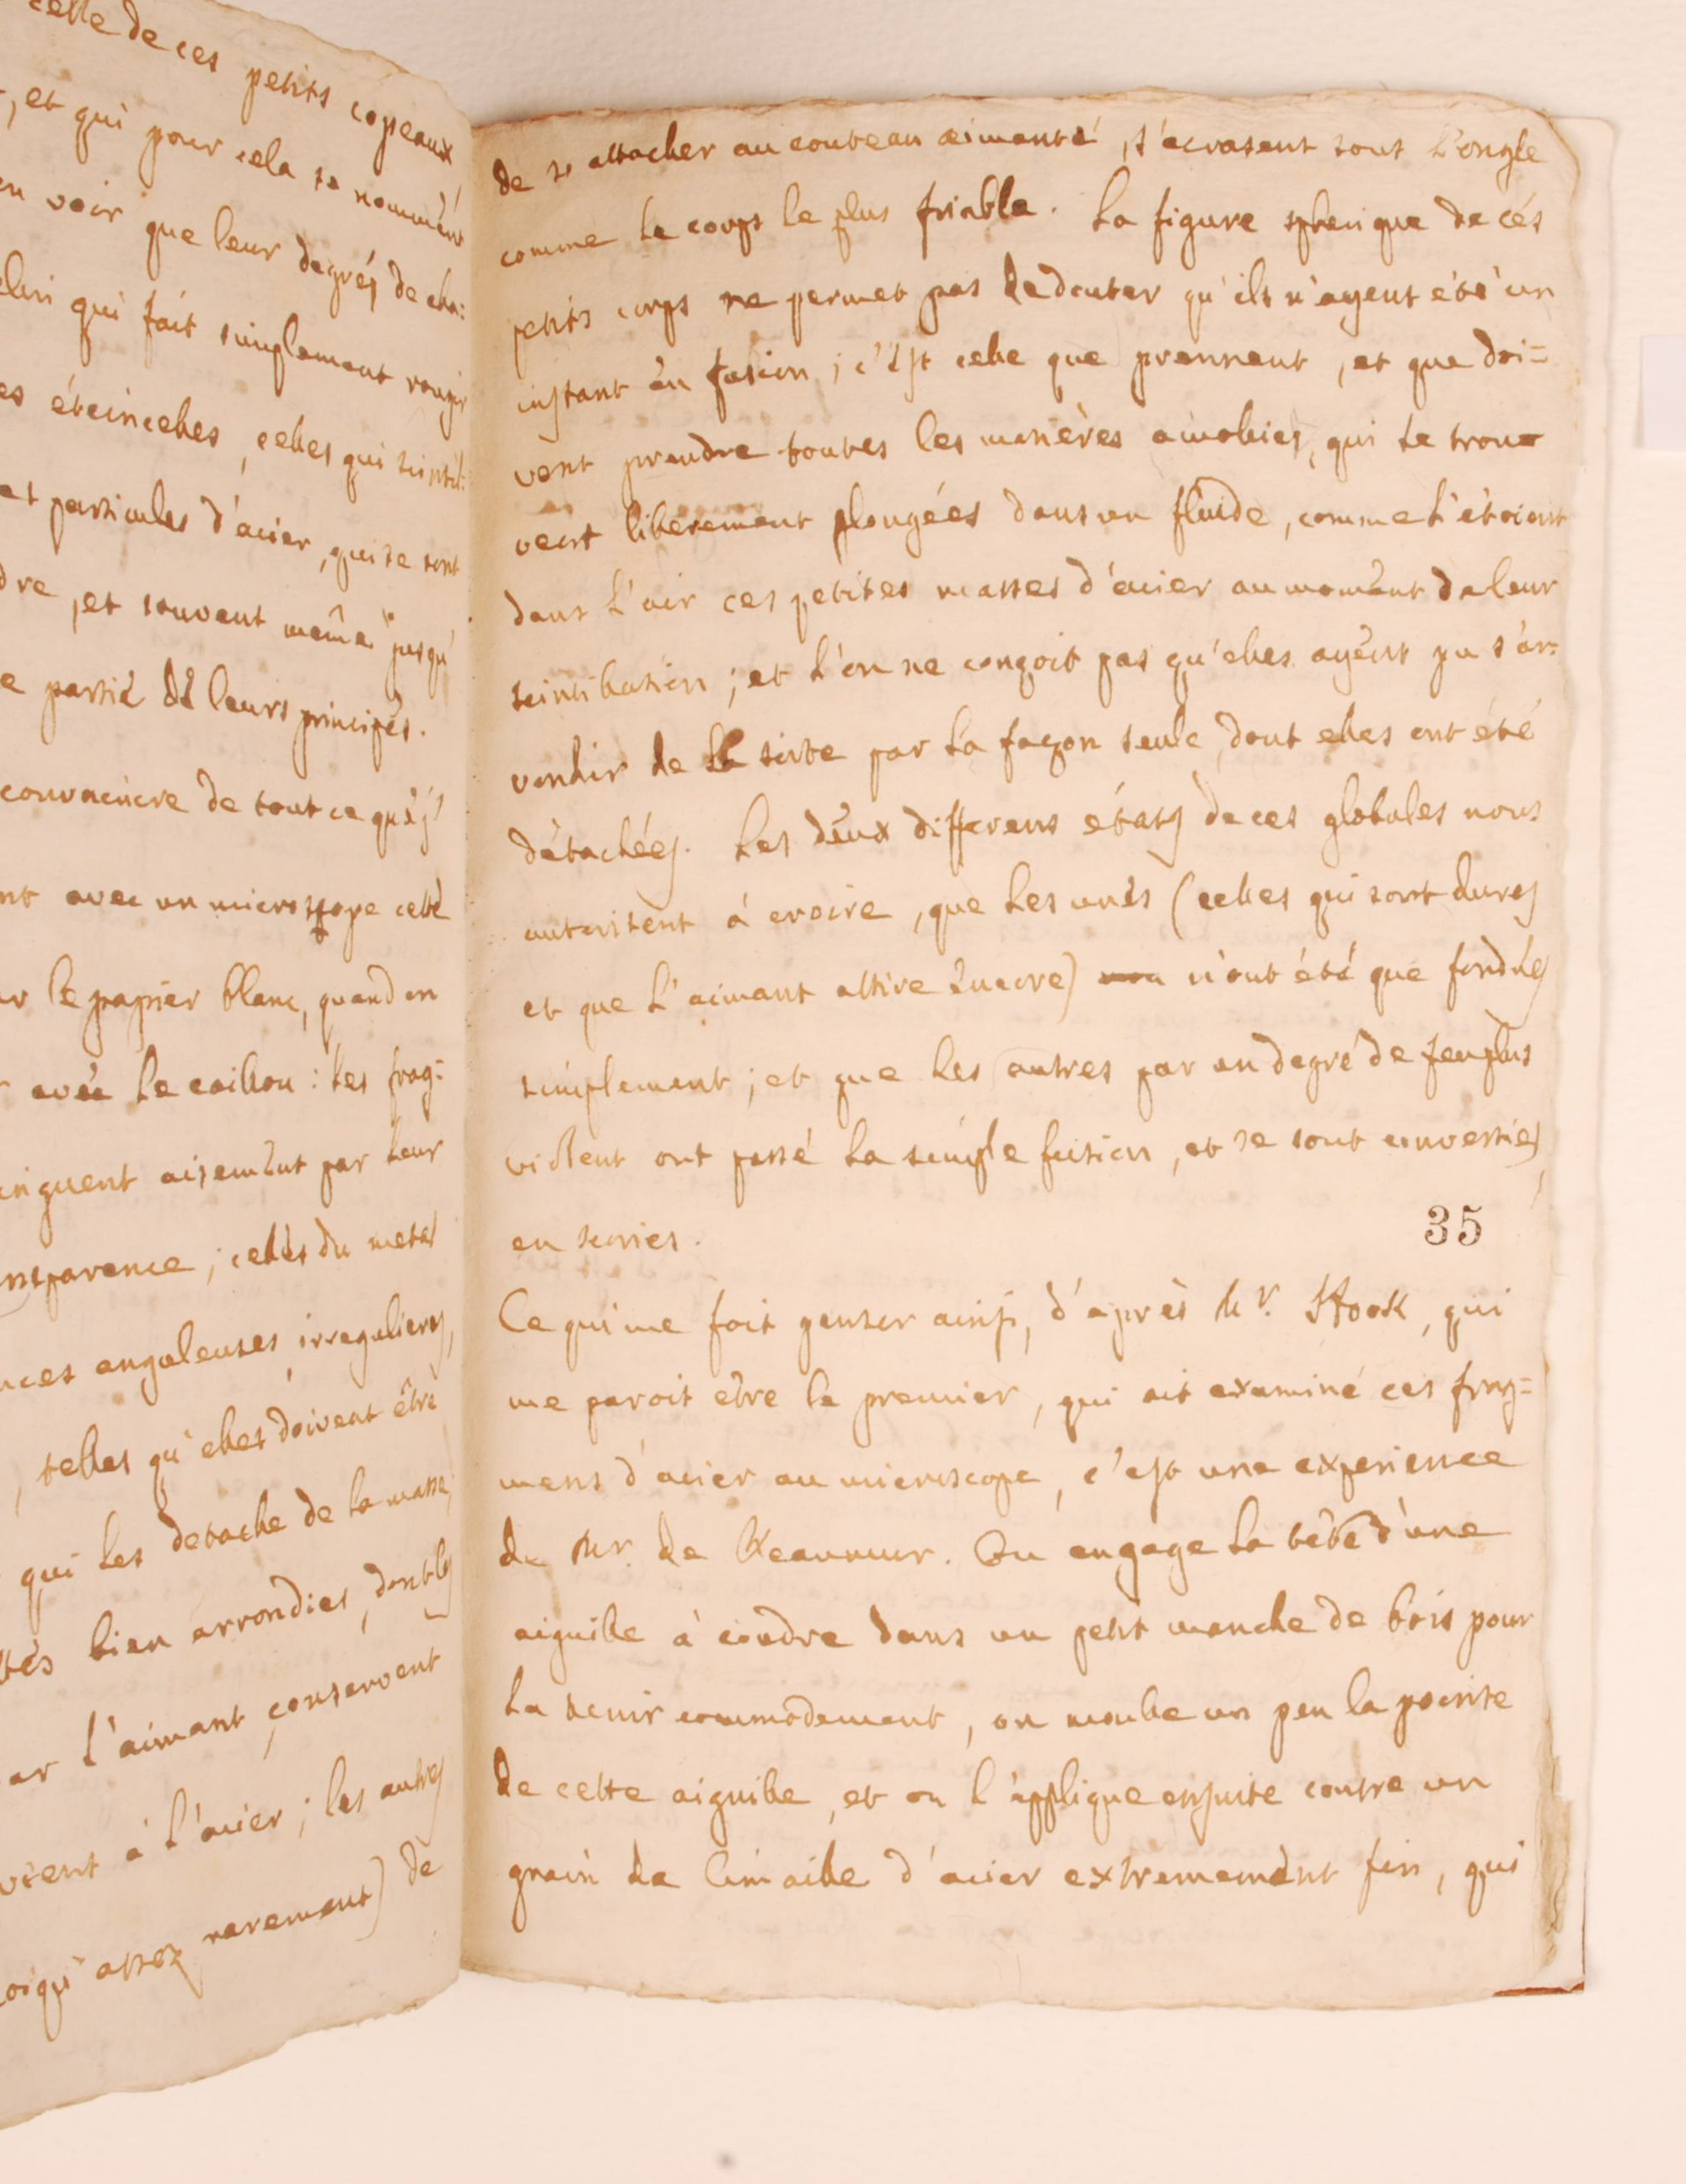 celle de ces petits copeaux
, et qui pour cela se nommént
en voir que leur degrés de cha:
elui qui fait simplement rougir
es éteincelles, celles qui scintil:
et particules d'acier, qui se sont
dre, et souvent même jusqu'
e partié dè leurs principes.
convaincre de tout ce què j'
nt avec un microscope cellè
ur le papier blanc, quand on
avec le caillou : les frag:
inguent aisemènt par leur
ansparence ; cellès du metal
nces anguleuses, irregulieres,
, telles qu'elles doivent être
qui les detache de la masse,
ttes bien arrondies, doubles
ar l'aimant, conservent
voient à l'acier ; les autres
oiqu'assez rarement) de
de s'attacher au couteau aimanté, s'ecrasent sous l'ongle
comme le corps le plus friable. La figure spherique de cés
petits corps ne permet pas de douter qu'ils n'ayent été un
instant en fusion ; c'est celle que prennent, et que doi=
vent prendre toutes les manières amollies, qui se trou=
vent liberement plongées dans un fluide, comme l'étoient
dans l'air ces petites masses d'acier au momènt de leur
scintillation ; et l'on ne conçoit pas qu'elles ayènt pu s'ar=
rondir de la sorte par la façon seule, dont elles ont été
détachées. Les deux differens états de ces globules nous
autorisent à croire, que les unès (celles qui sont dures
et que l'aimant attire èncore) n'ont été que fondues
simplement ; et que les autres par un degré de feu plus
violent ont passé la simple fusion, et se sont converties
en scories.
35
Ce qui me fait penser ainsi, d'après Mr. Hook, qui
me paroit etre le premier, qui ait examiné ces frag=
mens d'acier au microscope, c'est une experience
de Mr. de Reaumur. On engage la tête d'une
aiguille à coudre dans un petit manche de bois pour
la tenir commodement, on mouille un peu la pointe
de cette aiguille, et on l'applique ensuite contre un
grain de limaille d'acier extremement fin, qui